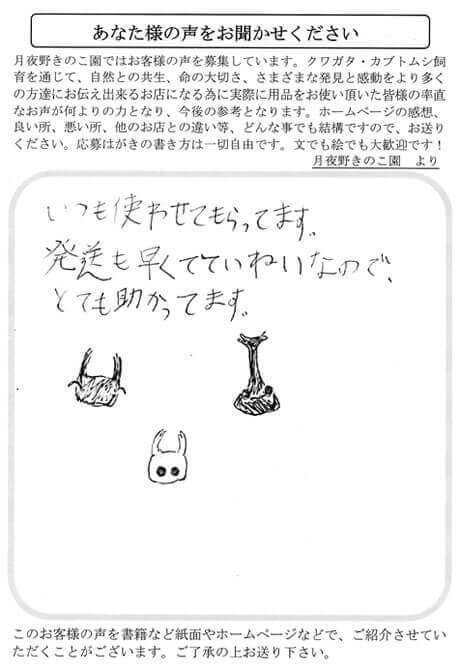 あなた様の声をお聞かせください
月夜野きのこ園ではお客様の声を募集しています。クワガタ・カブトムシ飼
育を通じて、自然との共生、命の大切さ、さまざまな発見と感動をより多く
の方達にお伝え出来るお店になる為に実際に用品をお使い頂いた皆様の率直
なお声が何よりの力となり、今後の参考となります。ホームページの感想、
良い所、悪い所、他のお店との違い等、どんな事でも結構ですので、お送り
ください。応募はがきの書き方は一切自由です。文でも絵でも大歓迎です！
月夜野きのこ園　より
いつも使わせてもらってます。
発送も早くてていねいなので、
とても助かってます。
このお客様の声を書籍など紙面やホームページなどで、ご紹介させてい
ただくことがございます。ご了承の上お送り下さい。